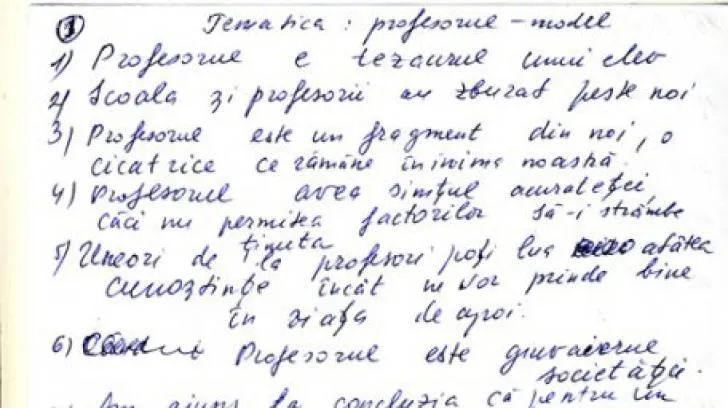 ① Tematica : profesorul – model
1) Profesorul e tezaurul unui elev
2) Școala și profesorii au zburat peste noi
3) Profesorul este un fragment din noi, o
cicatrice ce rămâne în inima noastră.
4) Profesorul avea simțul acurateței,
căci nu permitea factorilor să-i strâmbe
ținuta
5) Uneori de la profesori poți lua atâtea
cunoștințe încât ne vor prinde bine
în viața de apoi.
6) Profesorul este giuvaierul
societății.
Am ajuns la concluzia că pentru un